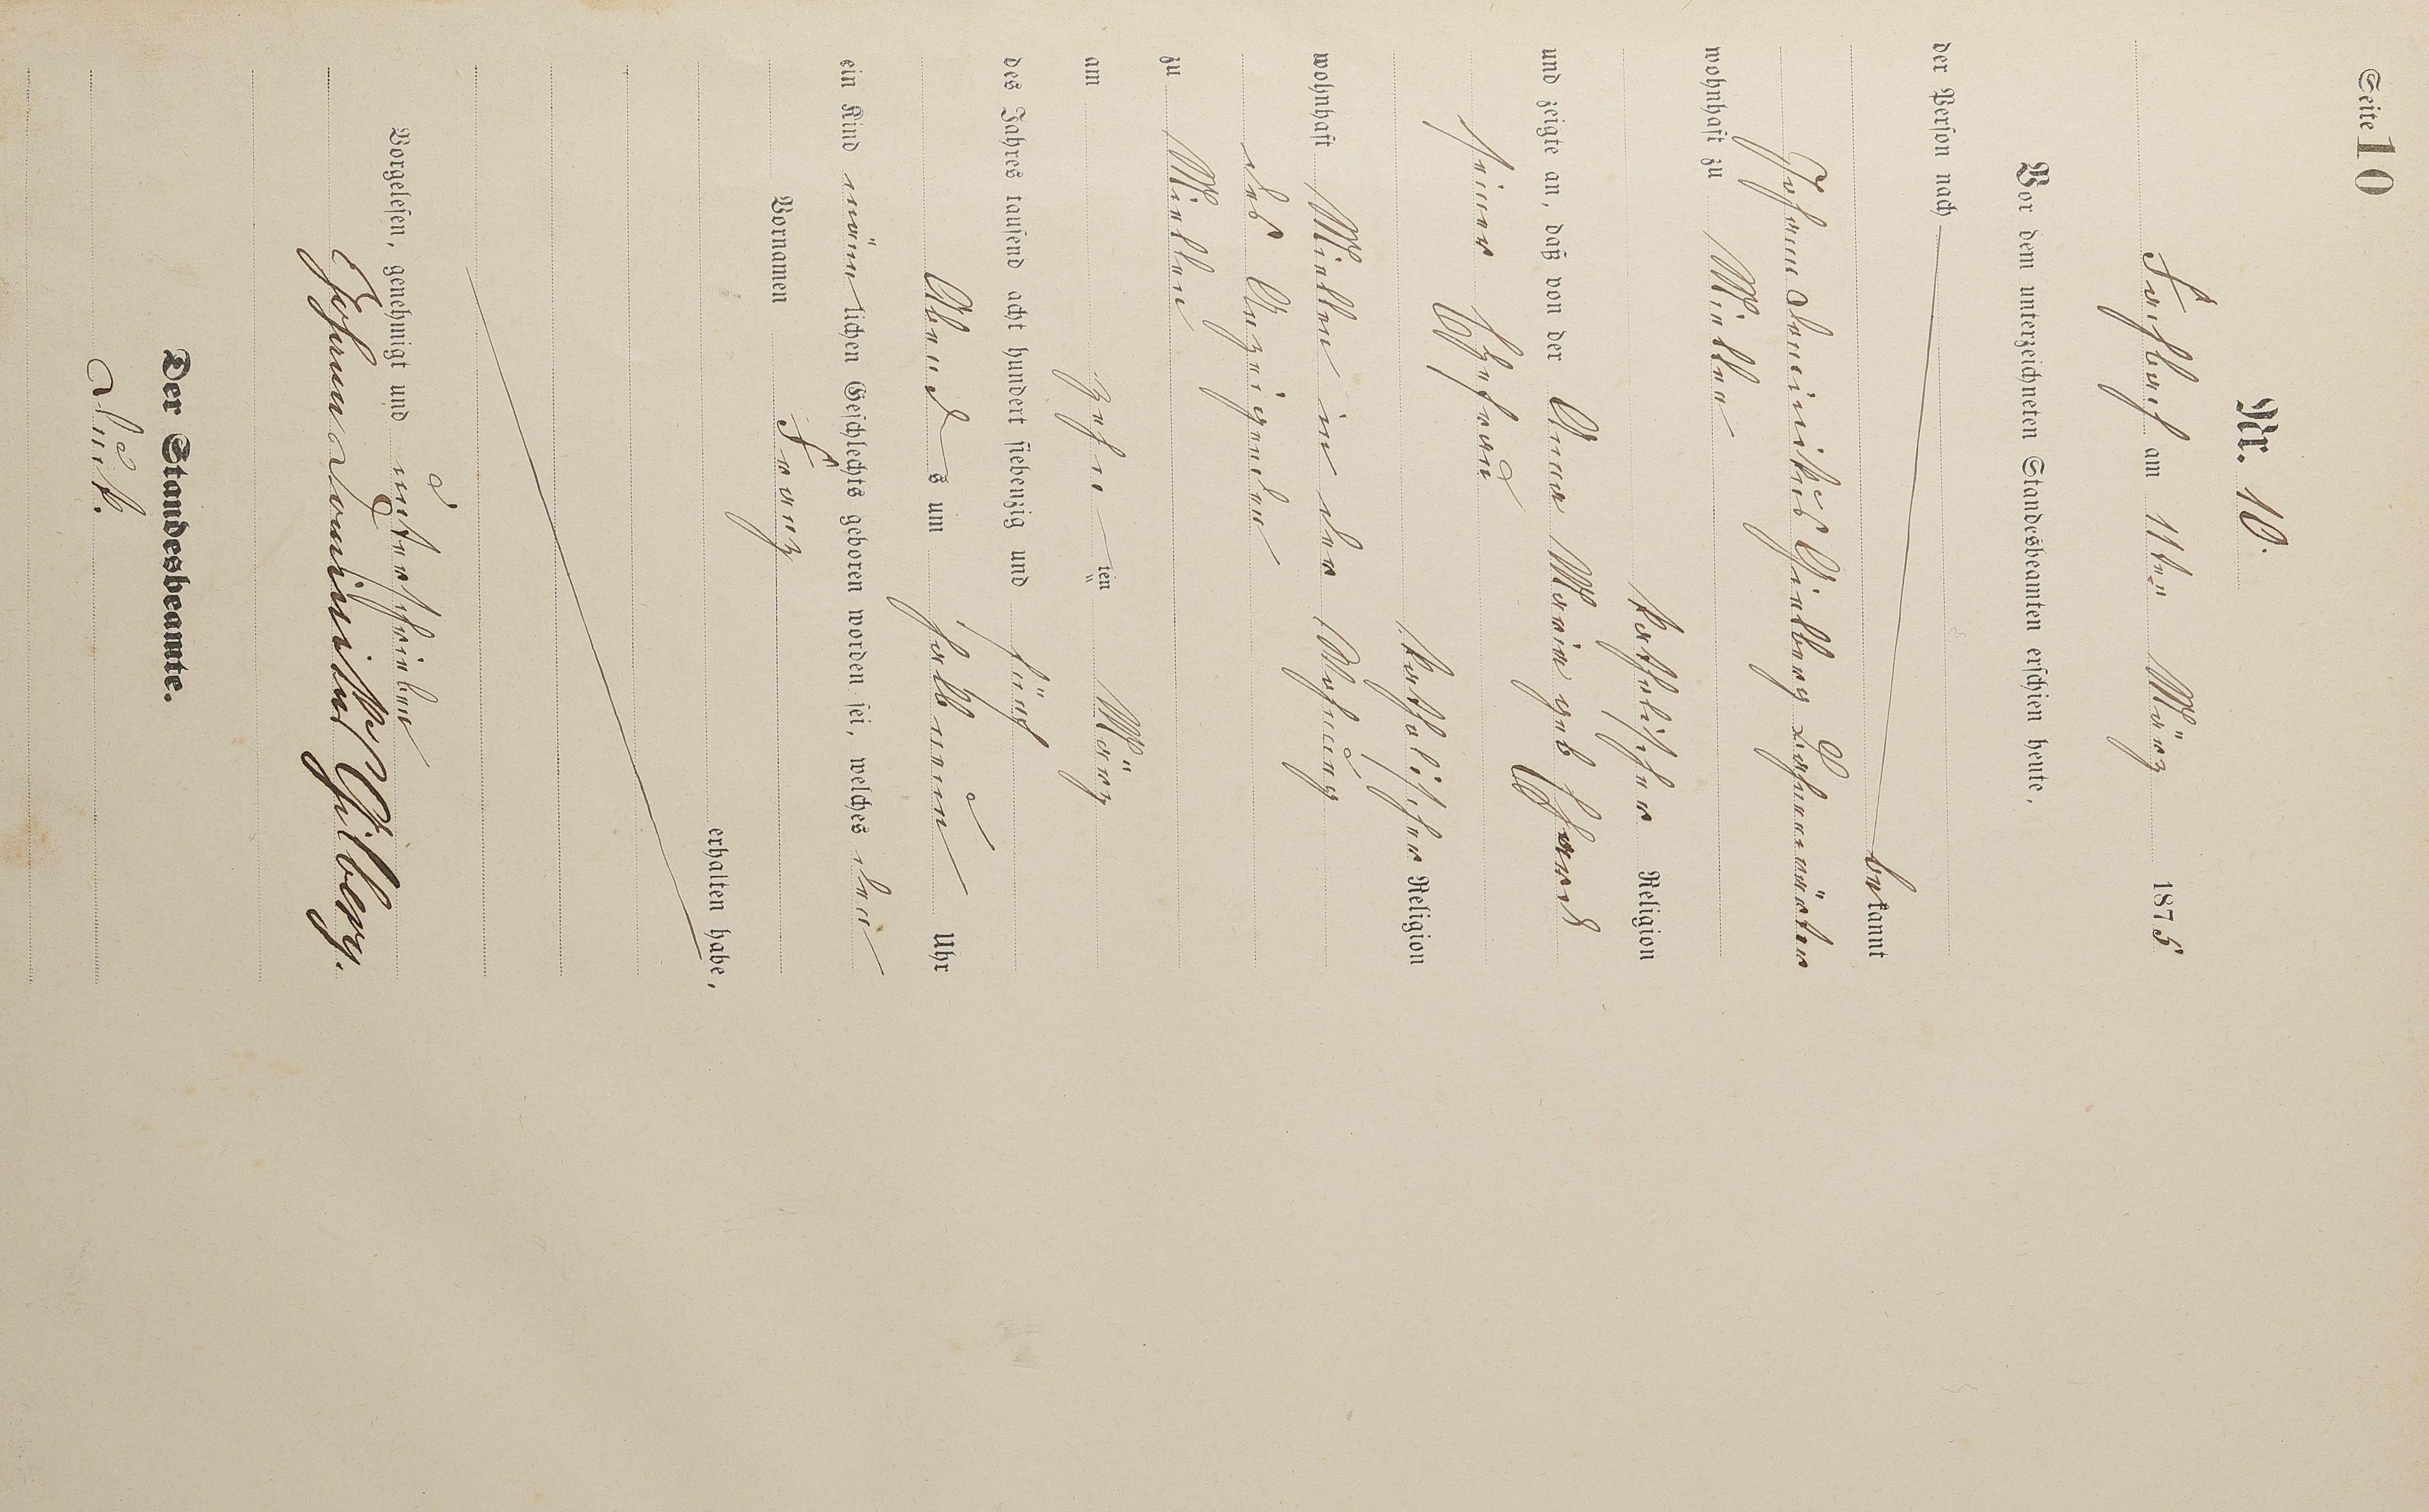 Seite 10
Nr. 10.
Fachbach am 11ten März 1875
Vor dem unterzeichneten Standesbeamten erschien heute,
der Person nach
bekannt
Johann Dominikus Gielberg Bahnwärter
wohnhaft zu Miellen
katholischer Religion
und zeigte an, daß von der Anna Maria geb
seiner Ehefrau
katholischer Religion
wohnhaft Miellen in der Wohnung
des Anzeigenden
zu Miellen
am zehn ten März
des Jahres tausend acht hundert siebenzig und fünf
Abend s um halb neun Uhr
ein Kind männlichen Geschlechts geboren worden sei, welches den
Vornamen Franz
erhalten habe,
Vorgelesen, genehmigt und unterschrieben
Johann Dominikus Gilberg.
Der Standesbeamte.